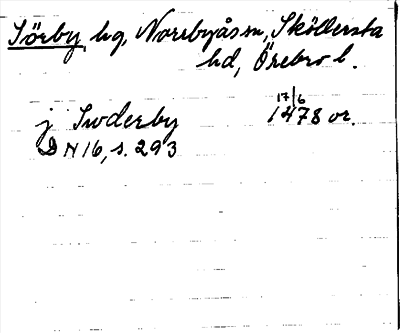 Sörby hg, Norrbyås sn, Sköllersta
hd, Örebro l.
j Swderby 17/6 1478 or.
DN 16, s. 293